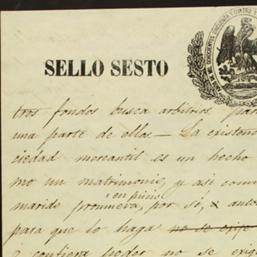 SELLO SESTO
tros fondos busca arbitrios, para
una parte de ellos.— La existen
ciedad mercantil es un hecho
mo un matrimonio, y asi como
en juicio
marido promueva, por si, x auto
para que lo haga no se exige
confiere poder no se exig